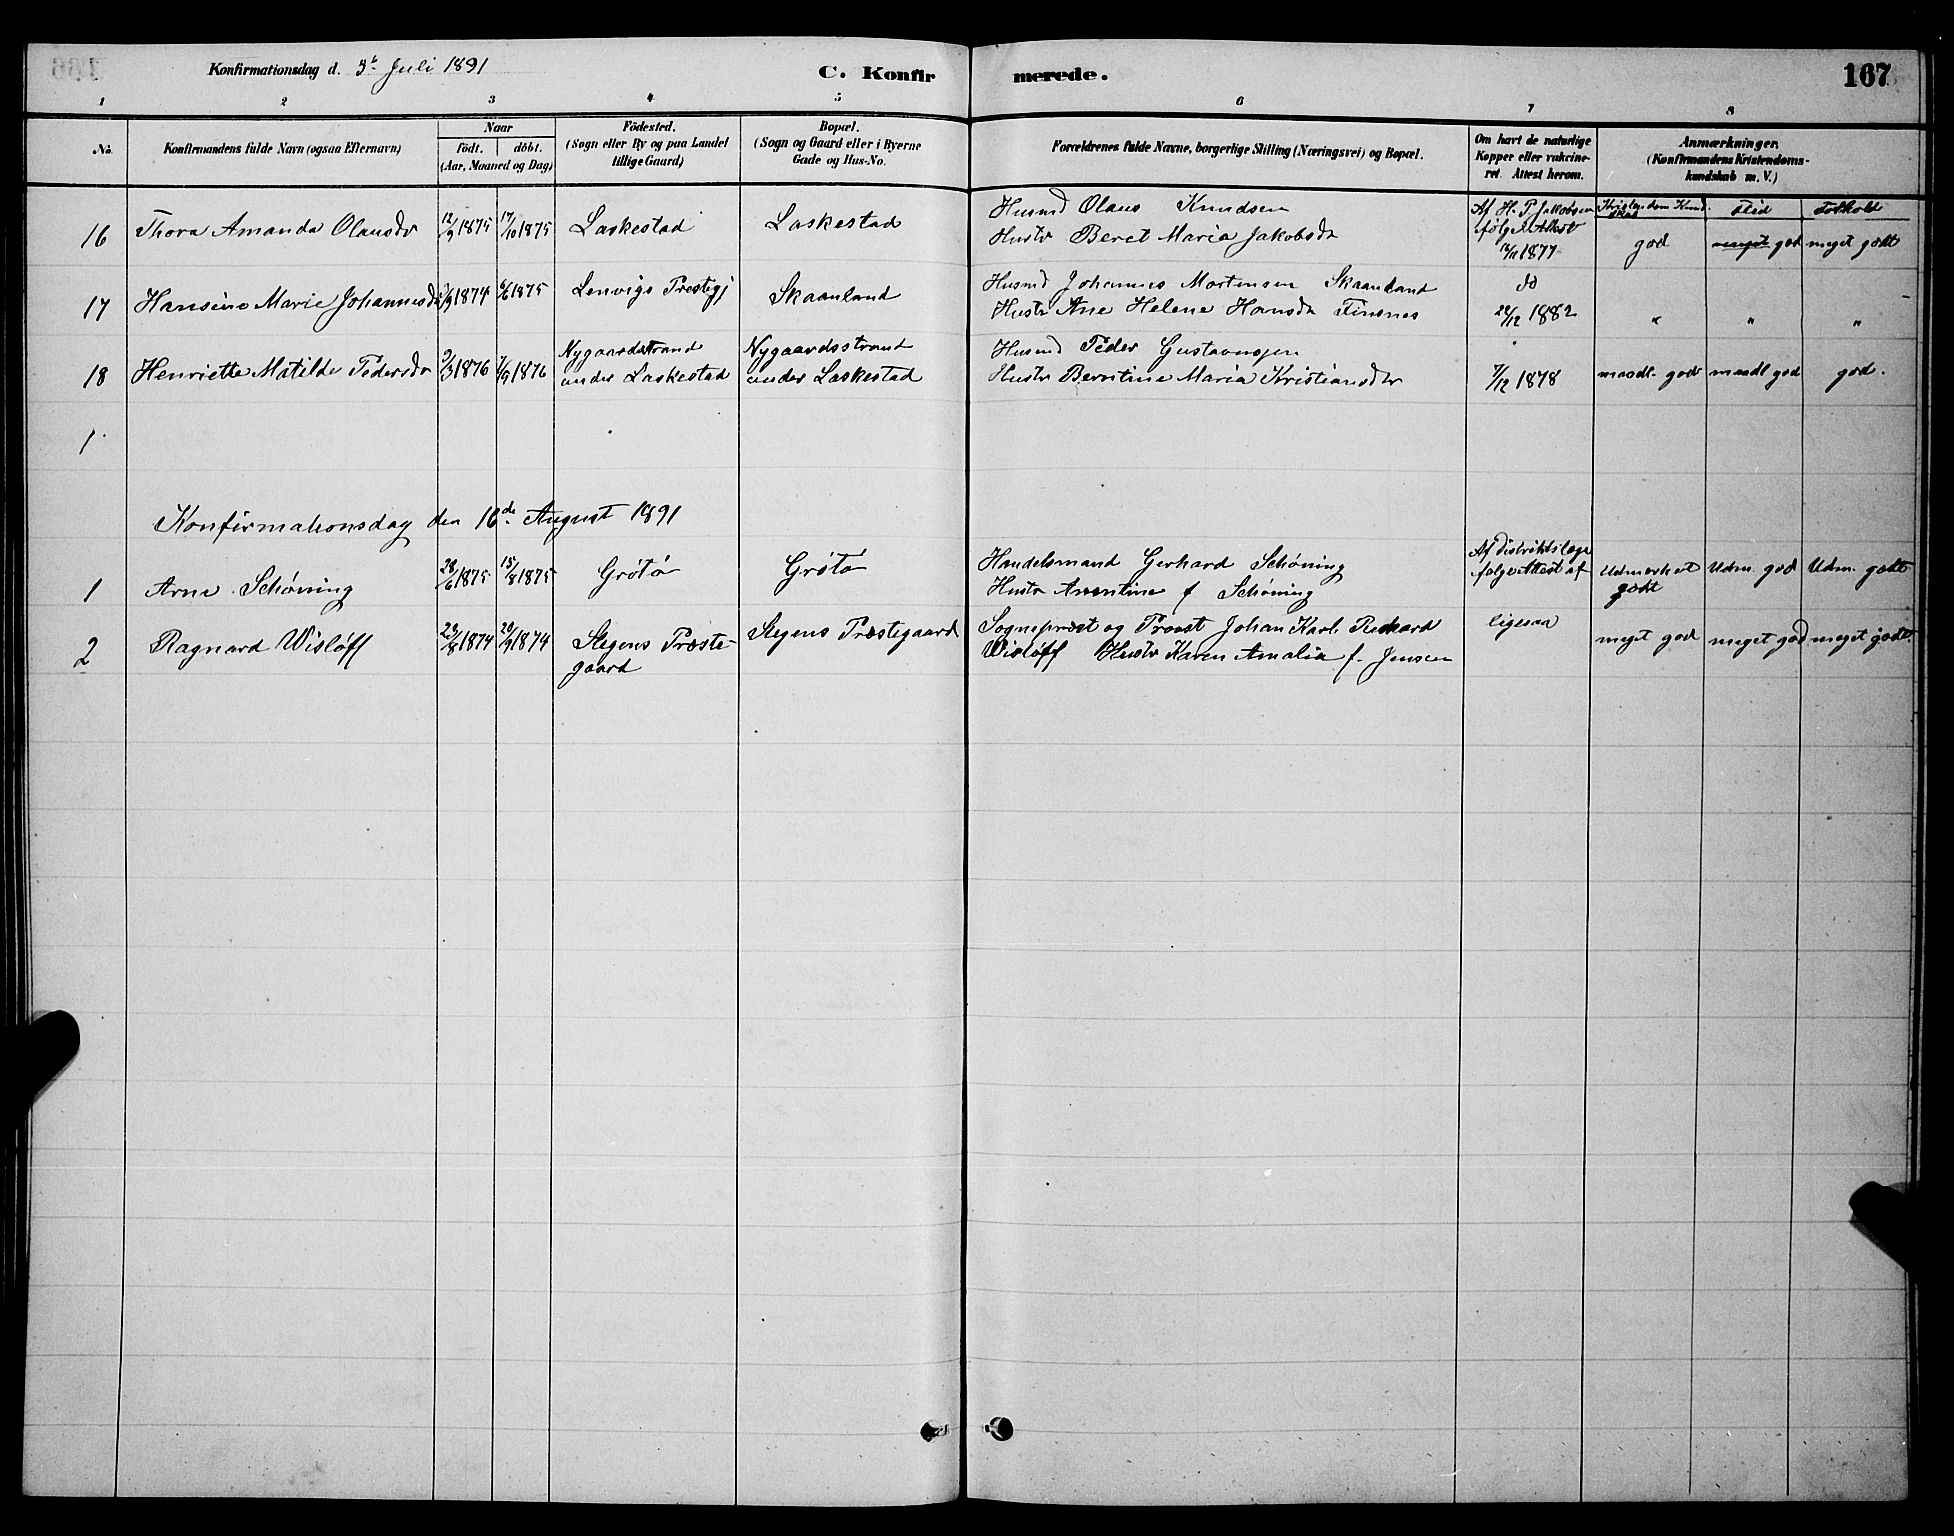 Konfirmationsdag d. 5te Juli 1891 C. Konfir merede. 167
1 2 3 4 5 6 7 8
No. Konfirmandens fulde Navn (ogsaa Efternavn)
Naar
födt. döbt.
(Aar, Maaned og Dag)
Födested.
(Sogn eller By og paa Landet
tillige Gaard)
Bopæl.
(Sogn og Gaard eller i Byerne
Gade og Hus-No.
Forældrenes fulde Navne, borgerlige Stilling (Næringsvei) og Bopæl.
Om havt de naturlige
Kopper eller vakcine-
ret. Attest herom.
Anmærkninger.
(Konfirmandens Kristendoms-
kundskab m. V.)
Kristendom Kund
skab Flid Forhold
16 Thora Amanda Olausdr 1875 17/10 1875 Laskestad Laskestad
Husmd Olaus Knudsen
Hustr Beret Maria Jakobsdr
Af H. P. Jakobsen
følge Attest
1877
god meget god meget godt
17 Hansine Marie Johannesdr 1874 1875 Lenvigs Prestegj Skaanland
Husmd Johannes Mortensen Skaanland
Hustr Ane Helene Hansdr Finsnes
do
22/12 1882
" " "
18 Henriette Matilde Pedersdr 9/3 1876 7/9 1876
Nygaardsstrand
under Laskestad
Nygaardsstrand
under Laskestad
Husmd Peder Gustavussen
Hustr Berntine Maria Kristiansdtr
7/12 1878 maadl. god maadl god god.
1
Konfirmationsdag den 16de August 1891
1 Arne Schøning 28/6 1875 15/8 1875 Grøtø Grøtø
Handelsmand Gerhard Schøning
Hustr Arentine f Schøning
Af Distriktslæge
følge Attest af
Udmærket
godt
Udm. god Udm. godt
2 Ragnard Wisløff 29/8 1874 20/9 1874
Stegens Præste-
gaard
Stegens Præstegaard
Sognepræst og Provst Johan Karl Rickard
Wisløff Hustr Karen Amalia f. Jensen
ligesaa
meget god meget god meget godt.